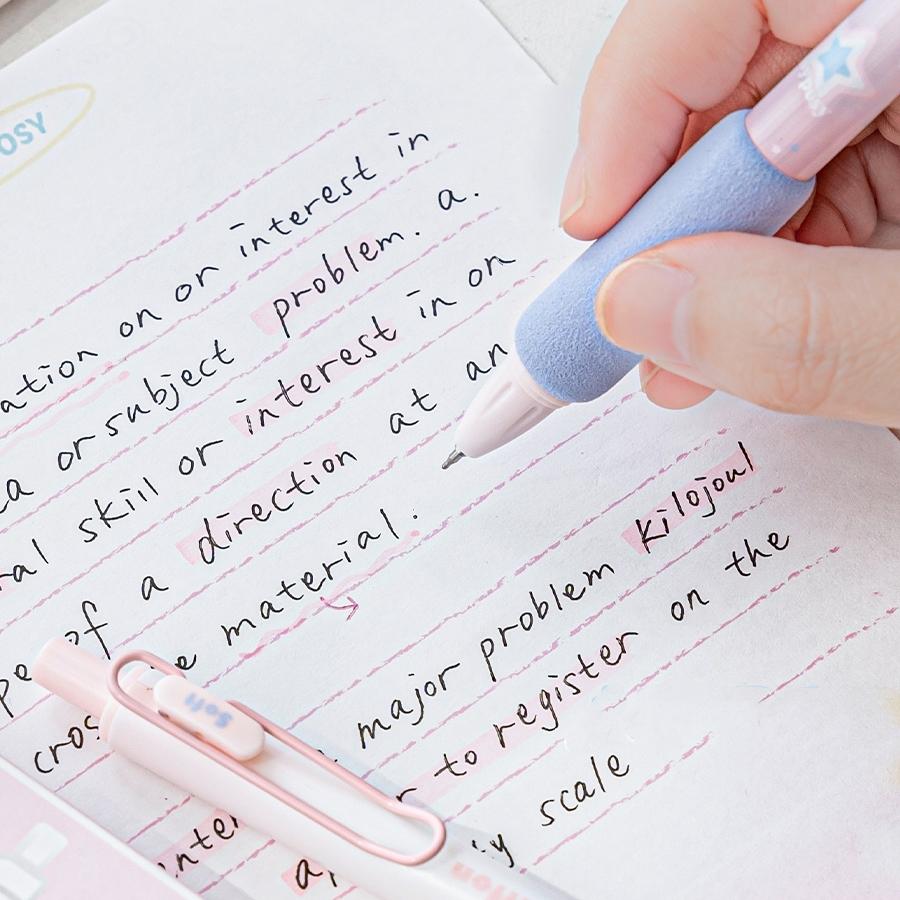 OSY
ation on or interest in
a or subject problem. a.
ral skill or interest in on
pe of a direction at an
e material.
cros major problem kilojoul
r to register on the
nter y scale
a
Soft